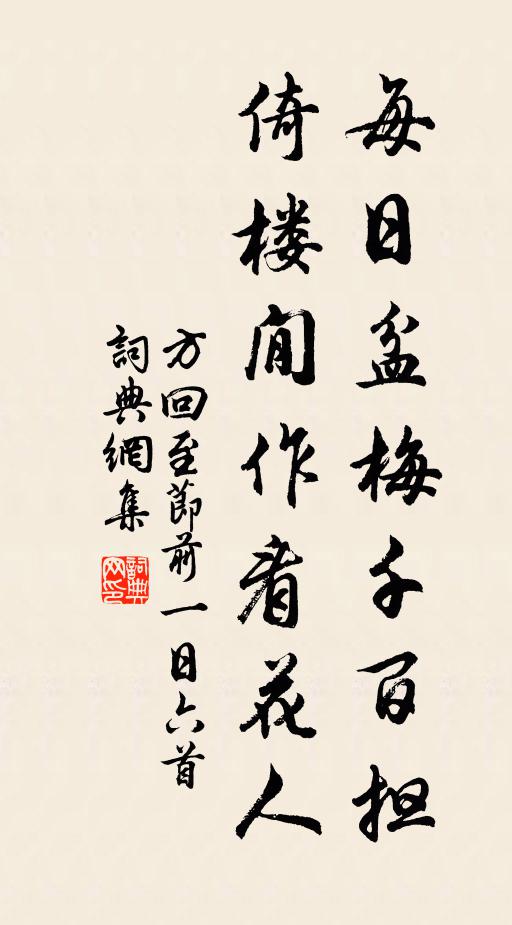 每日盆梅千百担
倚楼閒作看花人
方回至節前一日六首
詞典網集
詞典网印